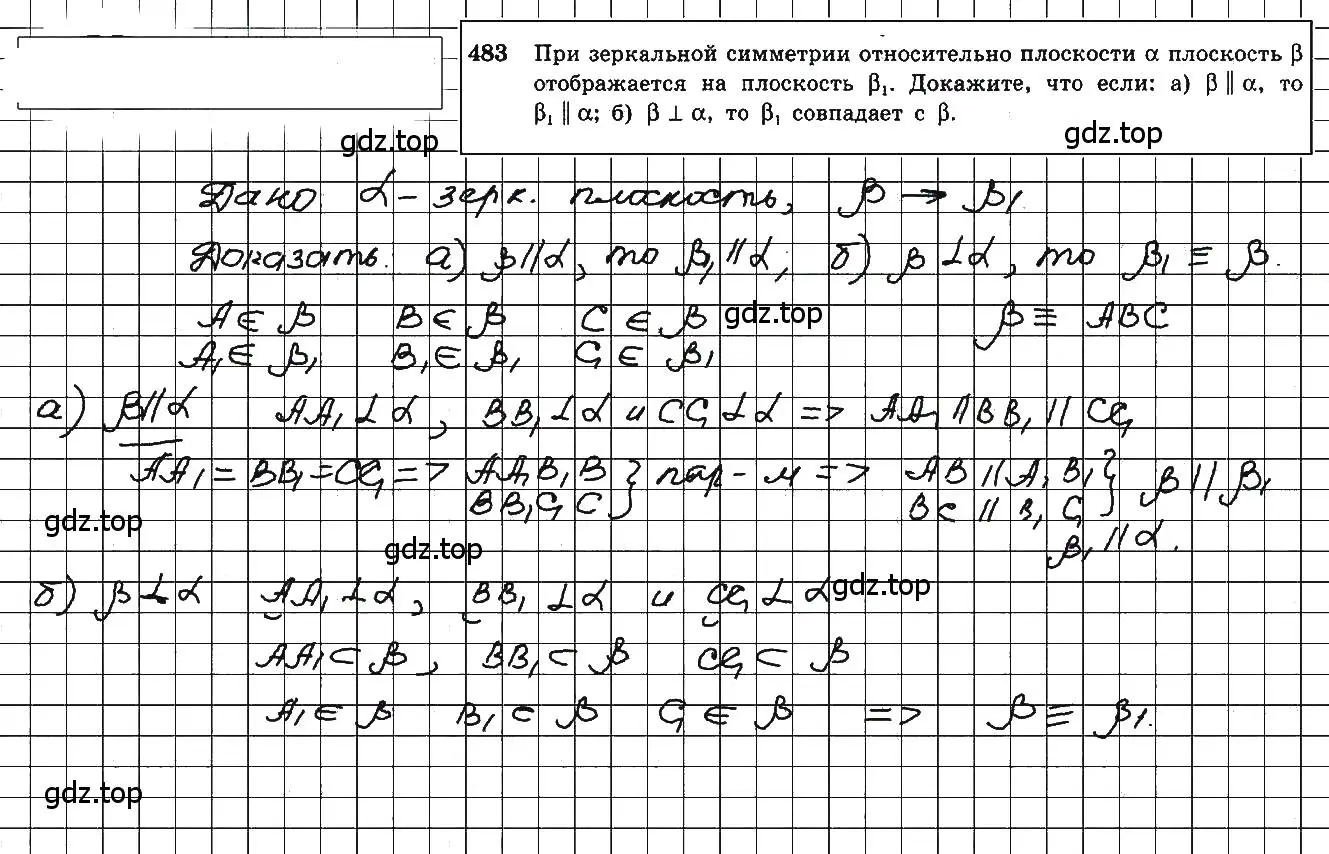 483 При зеркальной симметрии относительно плоскости α плоскость β
отображается на плоскость β₁. Докажите, что если: а) β ∥ α, то
β₁ ∥ α; б) β ⊥ α, то β₁ совпадает с β.
gdz.top
gdz.top
Дано: α – зерк. плоскость, β → β₁
Доказать: а) β ∥ α, то β₁ ∥ α; б) β ⊥ α, то β₁ ≡ β.
A ∈ β B ∈ β C ∈ β gdz.top β ≡ ABC
A₁ ∈ β₁ B₁ ∈ β₁ C₁ ∈ β₁
а) β ∥ α AA₁ ⊥ α, BB₁ ⊥ α и CC₁ ⊥ α => AA₁ ∥ BB₁ ∥ CC₁
AA₁ = BB₁ = CC₁ => AA₁B₁B } пар-м => AB ∥ A₁B₁ } β ∥ β₁
BB₁C₁C BC ∥ B₁C₁
gdz.top
gdz.top β₁ ∥ α.
б) β ⊥ α AA₁ ⊥ α, BB₁ ⊥ α и CC₁ ⊥ α gdz.top
AA₁ ⊂ β, BB₁ ⊂ β CC₁ ⊂ β
A₁ ∈ β B₁ ⊂ β C₁ ∈ β => β ≡ β₁.
gdz.top